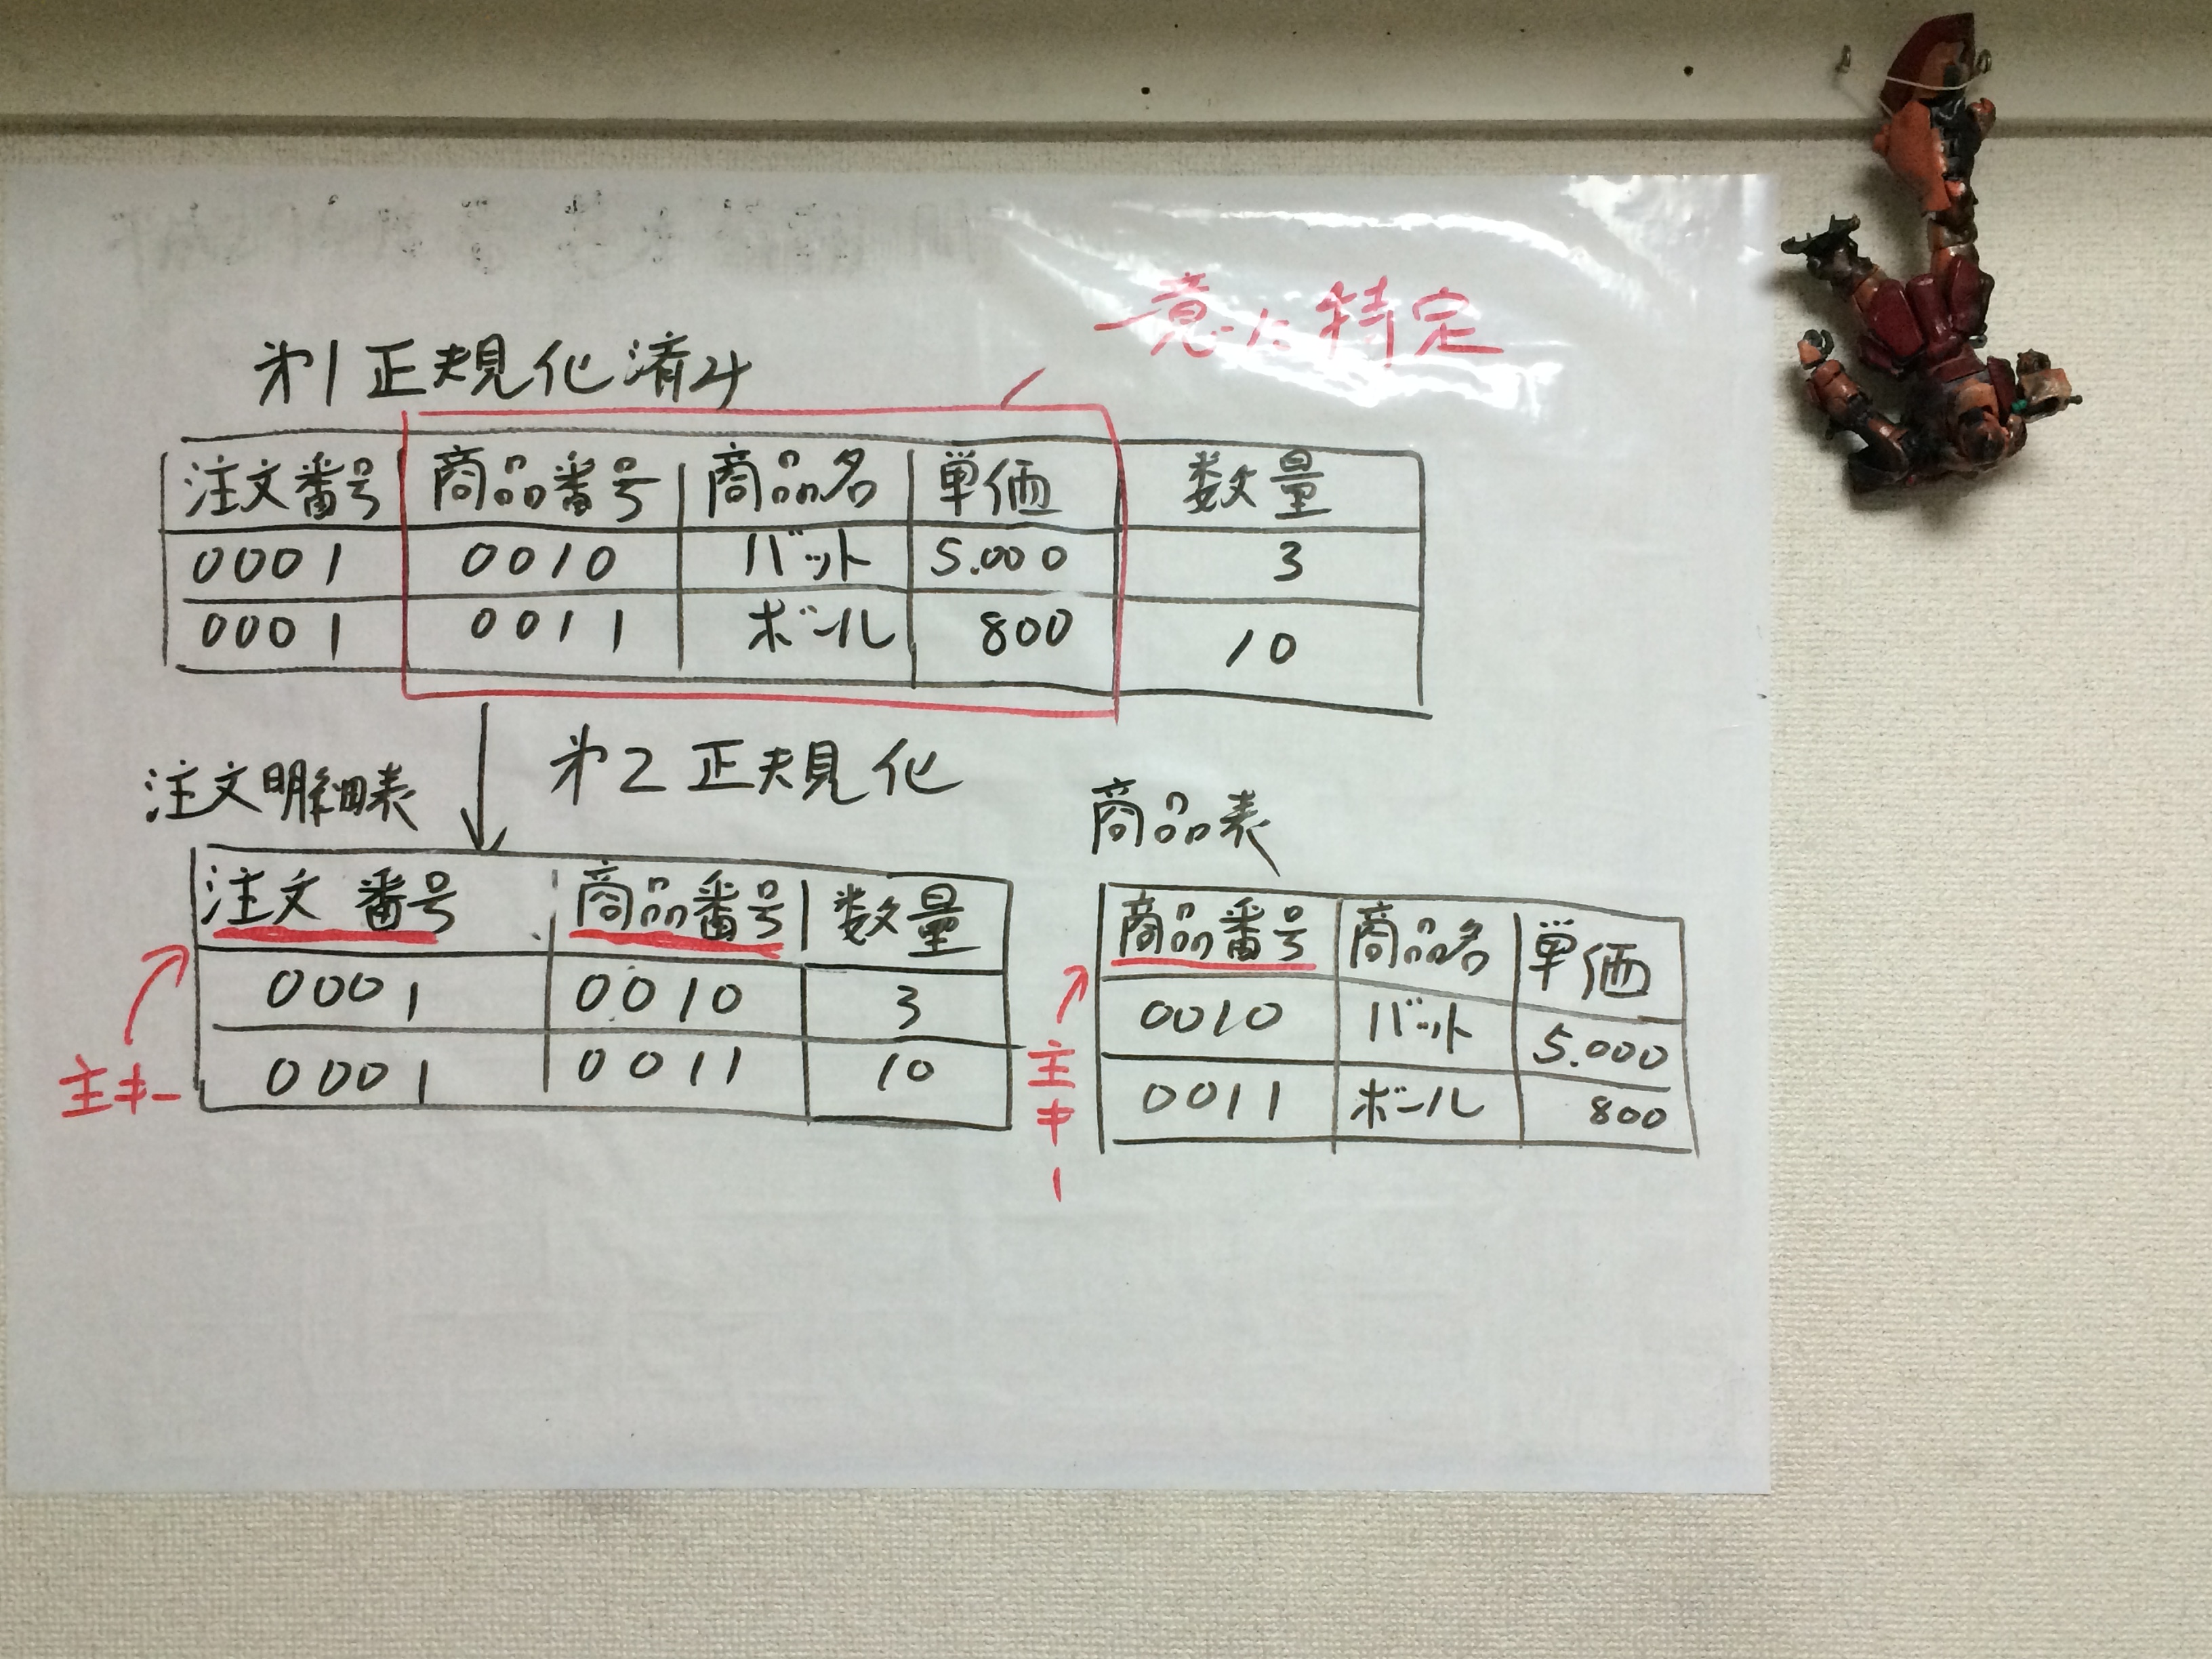 一意に特定
第1正規化済み
注文番号 商品番号 商品名 単価 数量
0001 0010 バット 5.000 3
0001 0011 ボール 800 10
第2正規化
注文明細表
注文番号 商品番号 数量
0001 0010 3
0001 0011 10
主キー
商品表
商品番号 商品名 単価
0010 バット 5.000
0011 ボール 800
主キー